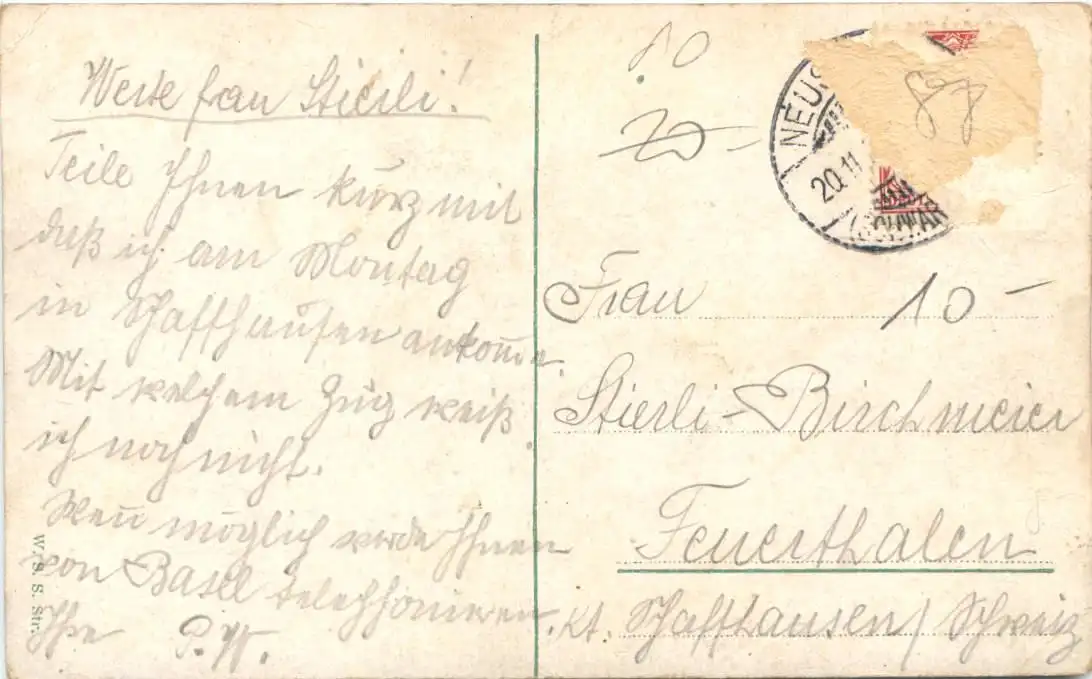 Werte Frau Stierli!
Teile Ihnen kurz mit
daß ich am Montag
in Schaffhausen ankom̄e.
Mit welchem Zug weiß
ich noch nicht.
Wen̄ möglich werde Ihnen
von Basel telephonieren.
Ihre P. W.
W. S. S. Str.
80
20
897
NEUS
20.11
(SCHWAR
Frau
10 -
Stierli-Birchmeier
Feuerthalen
Kt. Schaffhausen / Schweiz